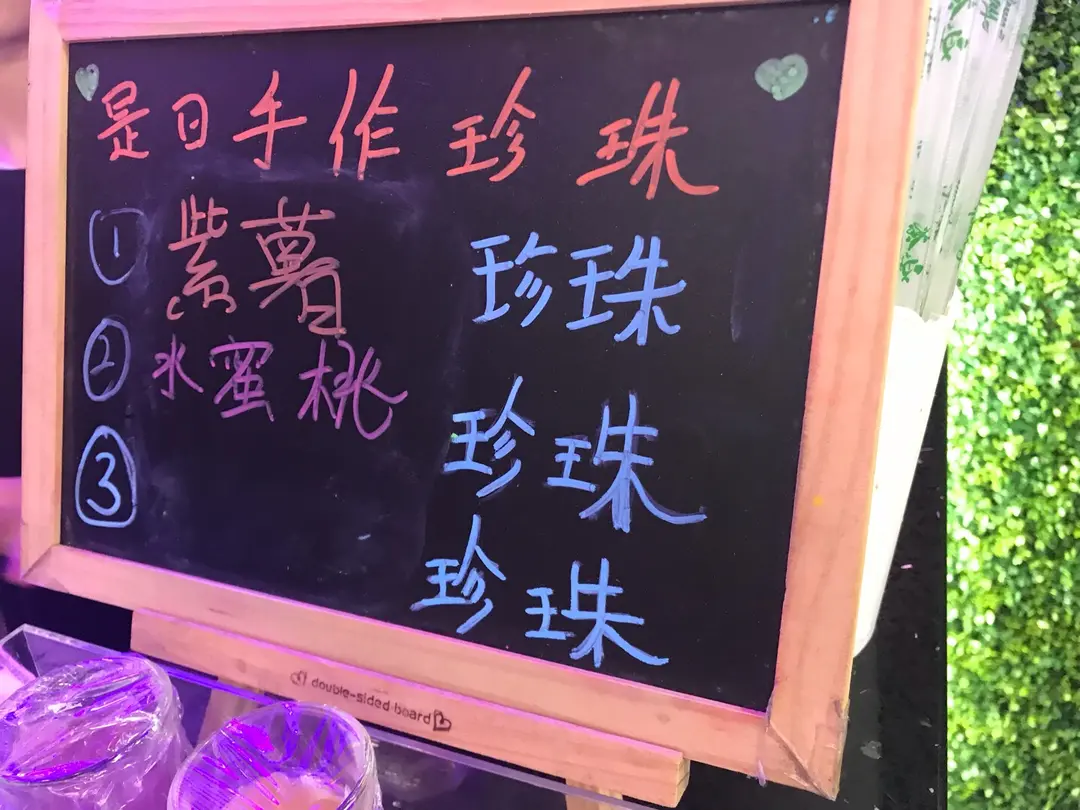 是日手作珍珠
① 紫薯 珍珠
② 水蜜桃 珍珠
③ 珍珠
double-sided board